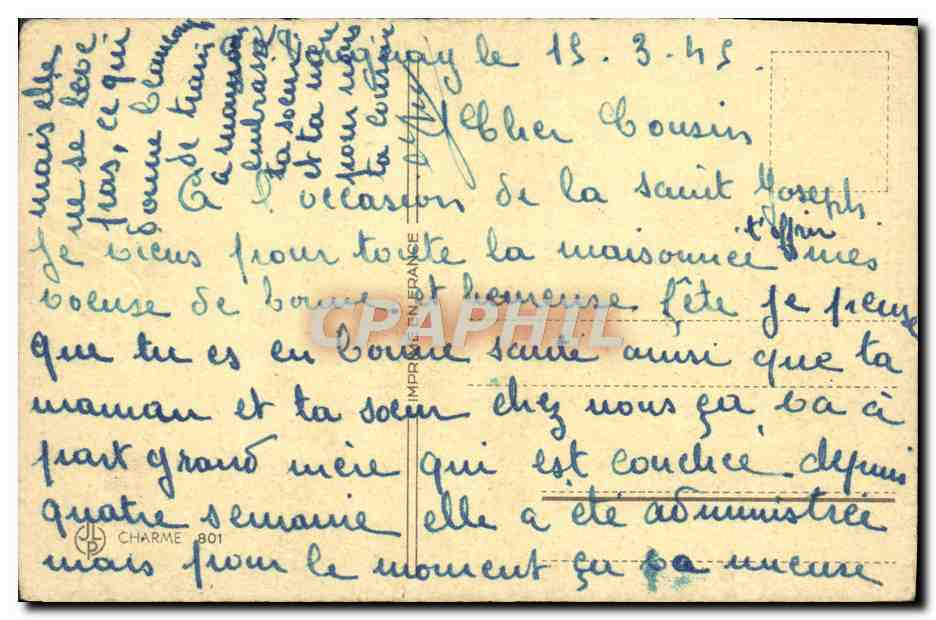 le 15.3.45.
Cher Cousin
A l'occasion de la saint Joseph
t'offrir
Je viens pour toute la maisonnee mes
voeuse de bonne et heureuse fête je pense
que tu es en bonne santé ainsi que ta
maman et ta sœur chez nous ça va à
part grand mère qui est couchée depuis
quatre semaine elle a été administrée
mais pour le moment ça va mieuse
mais elle
ne se leve
pas, ce qui
donne beaucoup
de travail
a maman
embrasse
ta soeur
et ta man
pour nous
ta cousine
IMPRIMÉ EN FRANCE
CPAPHIL
JLP
CHARME 801